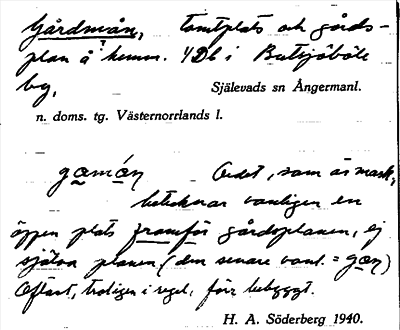 Gårdmån, tomtplats och gårds-
plan å hemm. 4Db i Butsjöböle
by,
Själevads sn Ångermanl.
n. doms. tg. Västernorrlands l.
gamán Ordet, som är mask.,
betecknar vanligen en
öppen plats framför gårdsplanen, ej
själva planen (den senare vanl. = gan)
Oftast, troligen i regel, förr bebyggt.
H. A. Söderberg 1940.